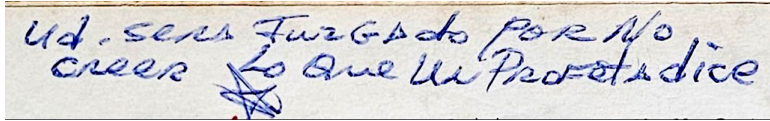 Ud. sera Juzgado por No
creer Lo Que Un Profeta dice